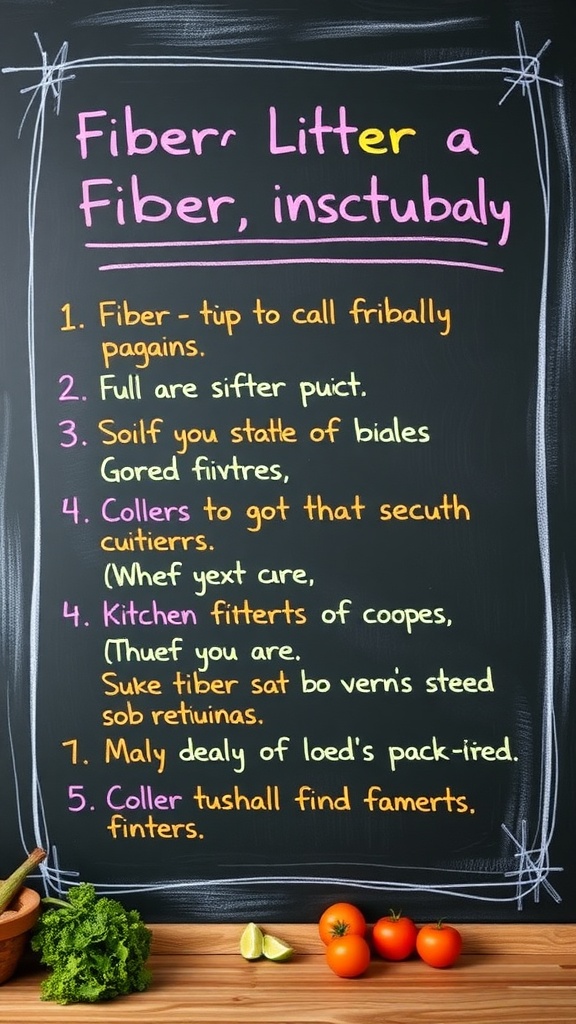 Fiberr Litter a
Fiber, insctubaly
1. Fiber - tip to call fribally
pagains.
2. Full are sifter puict.
3. Soilf you statle of biales
Gored fiivtres,
4. Collers to got that secuth
cuitierrs.
(Whef yext care,
4. Kitchen fitterts of coopes,
(Thuef you are.
Suke tiber sat bo vern's steed
sob retiuinas.
7. Maly dealy of loed's pack-ired.
5. Coller tushall find famerts.
finters.